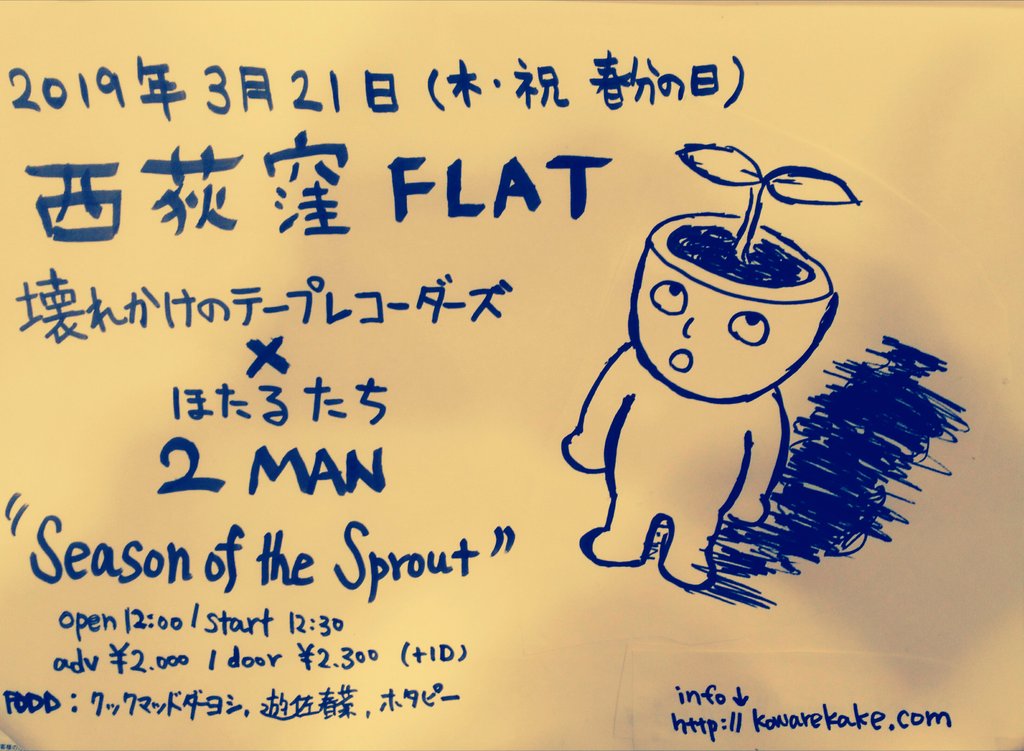 2019年3月21日(木・祝 春分の日)
西荻窪 FLAT
壊れかけのテープレコーダーズ
×
ほたるたち
2 MAN
"Season of the Sprout"
open 12:00 / start 12:30
adv ¥2.000 / door ¥2.300 (+1D)
FOOD : クックマッドダーヨシ, 遊佐春菜, ホタピー
info↓
http://kowarekake.com